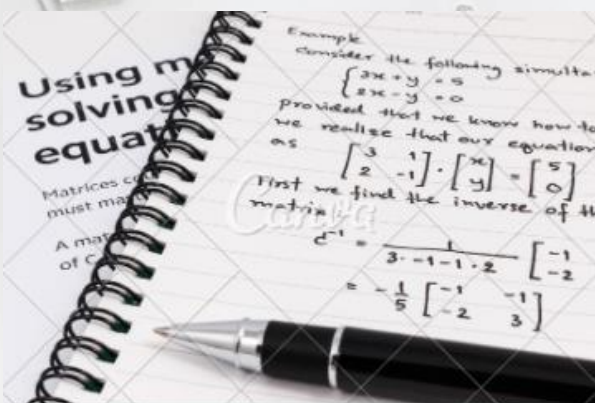 Using m
solving
equat
Matrices c
must ma
A mat
of C
Example
Consider the following simulta
3x + y = 5
2x - y = 0
Provided that we know how to
we realise that our equation
as [3 1; 2 -1] · [x; y] = [5; 0]
First we find the inverse of th
matrix
= 1 / 3·-1-1·2 [-1; -2
= -1/5 [-1 -1; -2 3]
Canva